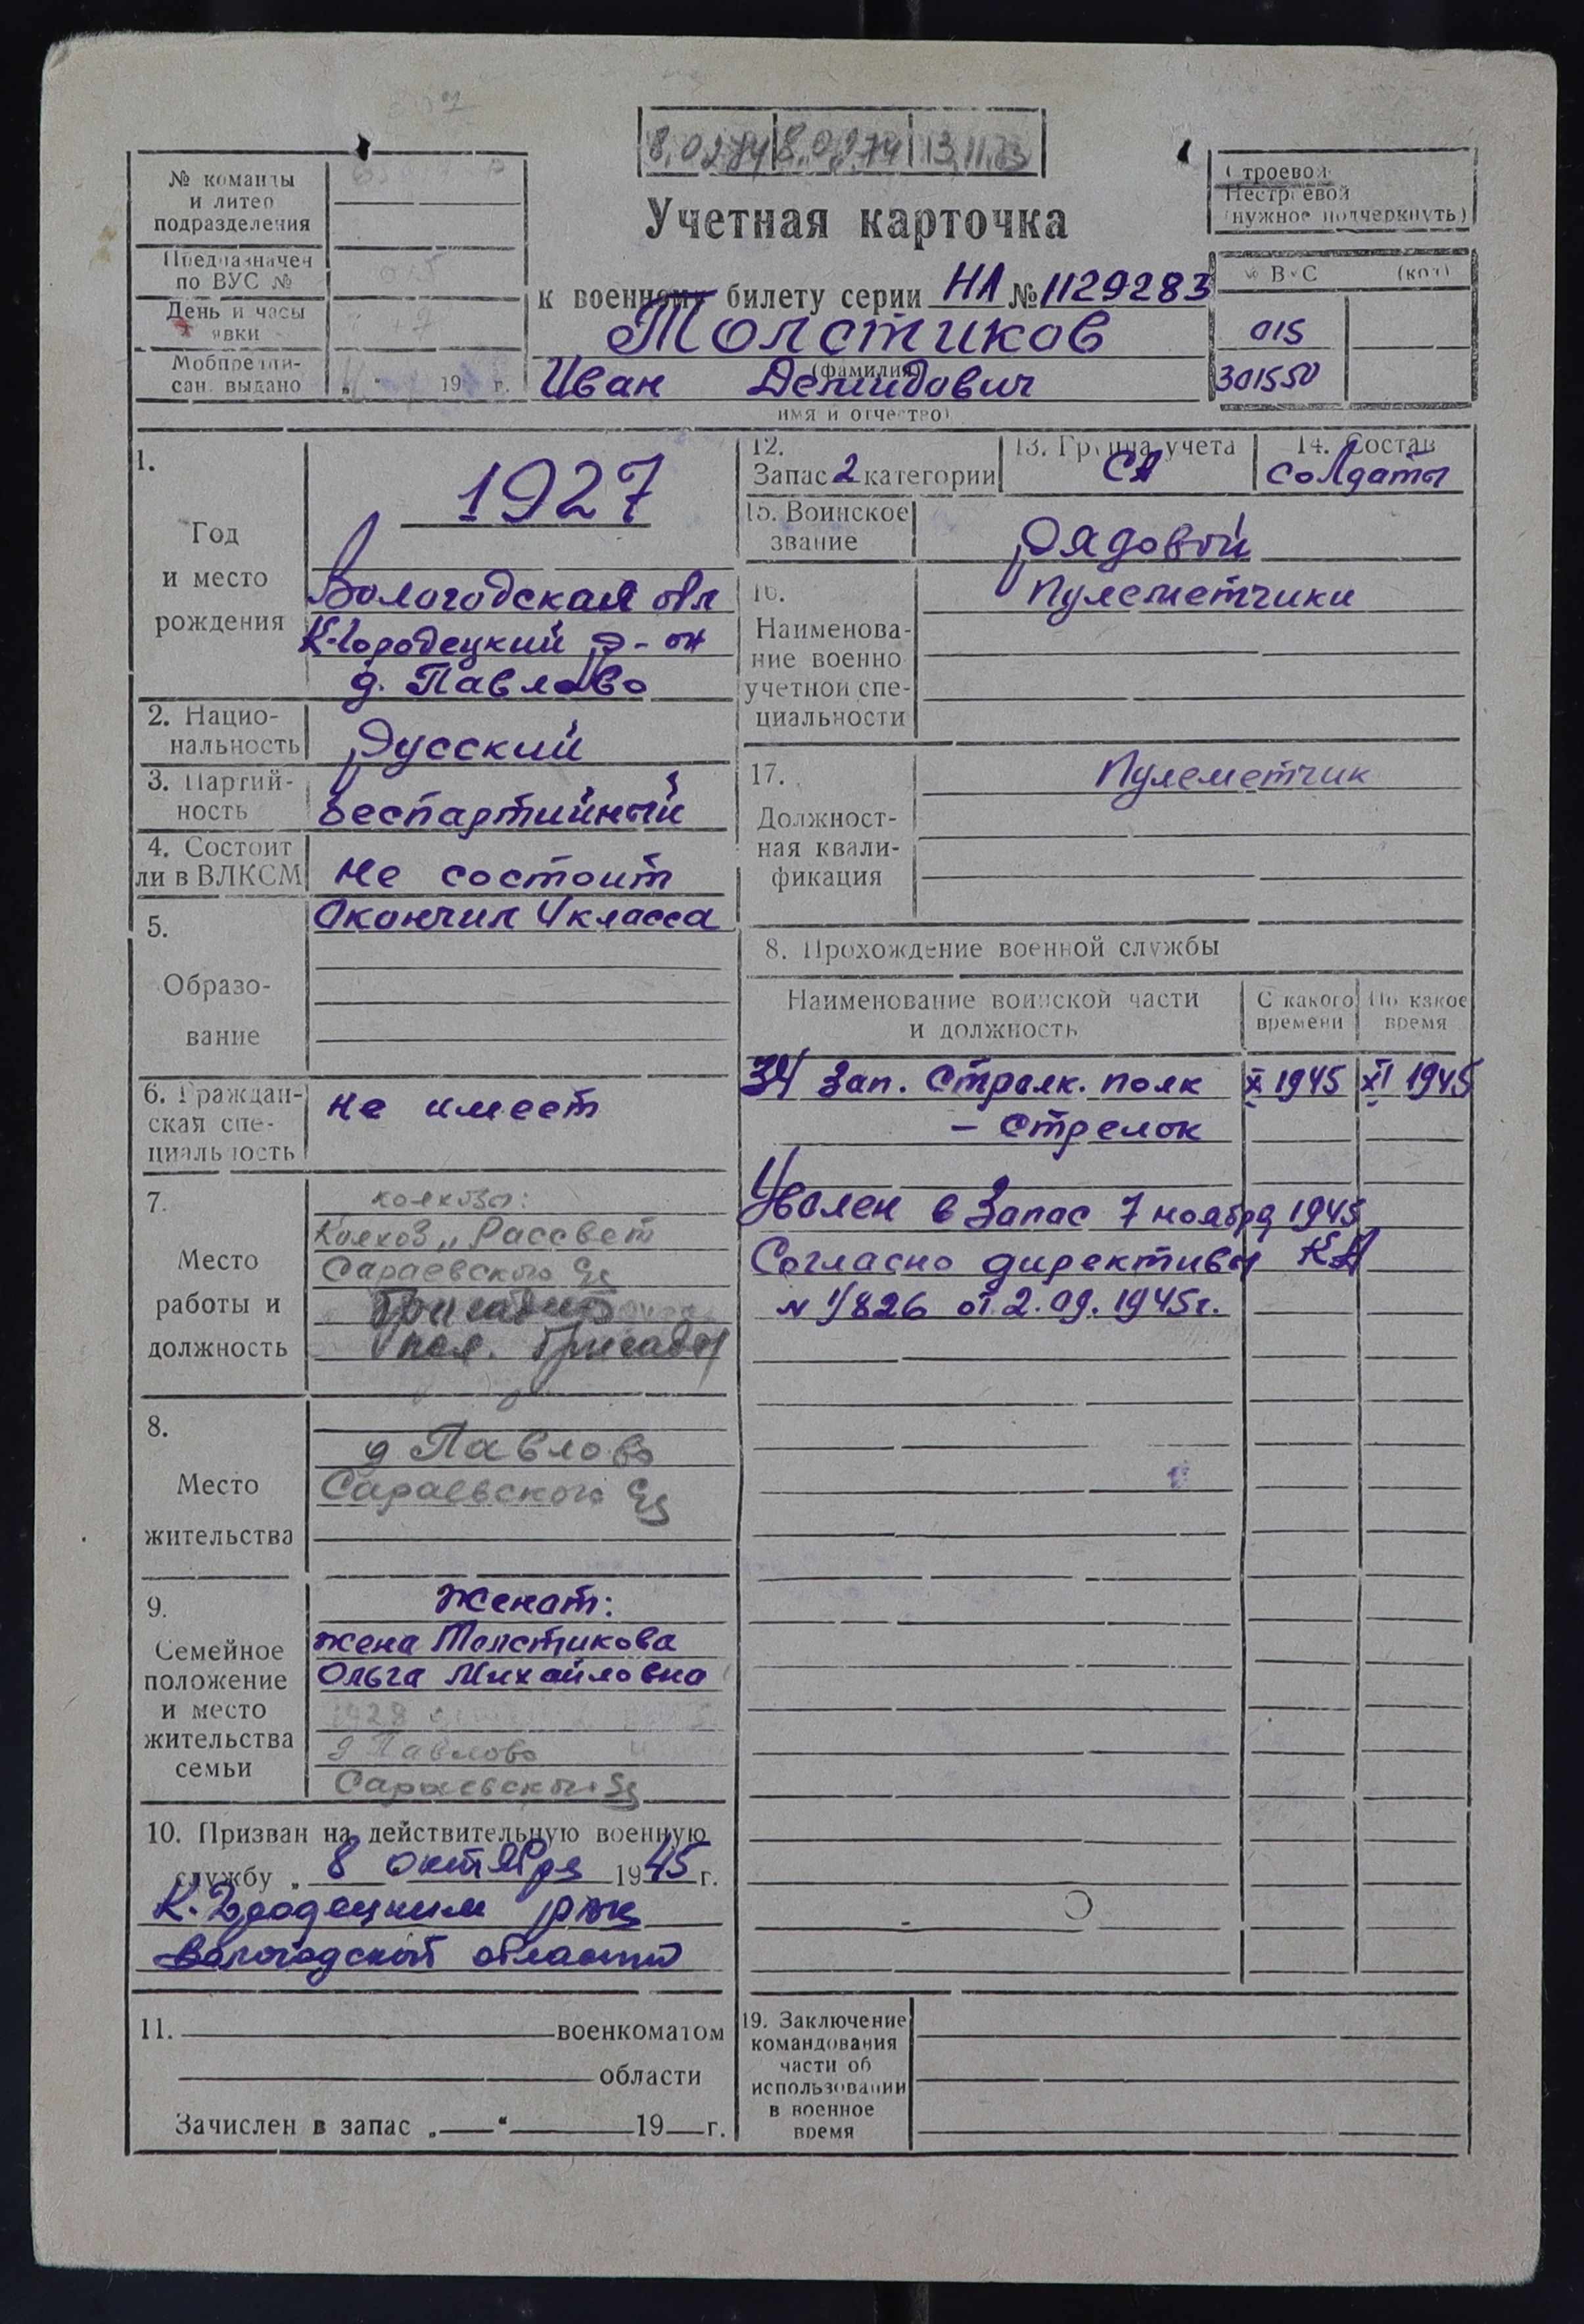 8.02.74 8.02.74 13.11.73
№ команды
и литер
подразделения
Предназначен
по ВУС №
День и часы
явки
Мобпредпи-
сан. выдано „ “ 19 г.
Учетная карточка
к военному билету серии НЛ № 1129283
Толстиков
(фамилия)
Иван Демидович
имя и отчество)
Строевой
Нестроевой
(нужное подчеркнуть)
№ ВУС (код)
015
301550
1.
Год
и место
рождения
1927
Вологодская обл
К-Городецкий р-он
д. Павлово
2. Нацио-
нальность
Русский
3. Партий-
ность
Беспартийный
4. Состоит
ли в ВЛКСМ
не состоит
5.
Образо-
вание
Окончил 4 класса
6. Граждан-
ская спе-
циальность
не имеет
7.
Место
работы и
должность
Колхоз „Рассвет
Сараевского
бригадир
пол. бригады
8.
Место
жительства
д Павлово
Сараевского
9.
Семейное
положение
и место
жительства
семьи
Женат:
жена Толстикова
Ольга Михайловна
1928
д Павлово
Сараевского
10. Призван на действительную военную
службу „ 8 октября 1945 г.
К. Городецким рвк
Вологодской области
11. военкоматом
области
Зачислен в запас „ “ 19 г.
12.
Запас 2 категории
13. Группа учета
СА
14. Состав
Солдаты
15. Воинское
звание
Рядовой
16.
Наименова-
ние военно
учетной спе-
циальности
Пулеметчики
17.
Должност-
ная квали-
фикация
Пулеметчик
8. Прохождение военной службы
Наименование воинской части
и должность
С какого
времени
По какое
время
34 Зап. Стрелк. полк X 1945 XI 1945
– Стрелок
Уволен в Запас 7 ноября 1945
Согласно директивы КА
N 1/826 от 2.09.1945г.
19. Заключение
командования
части об
использовании
в военное
время